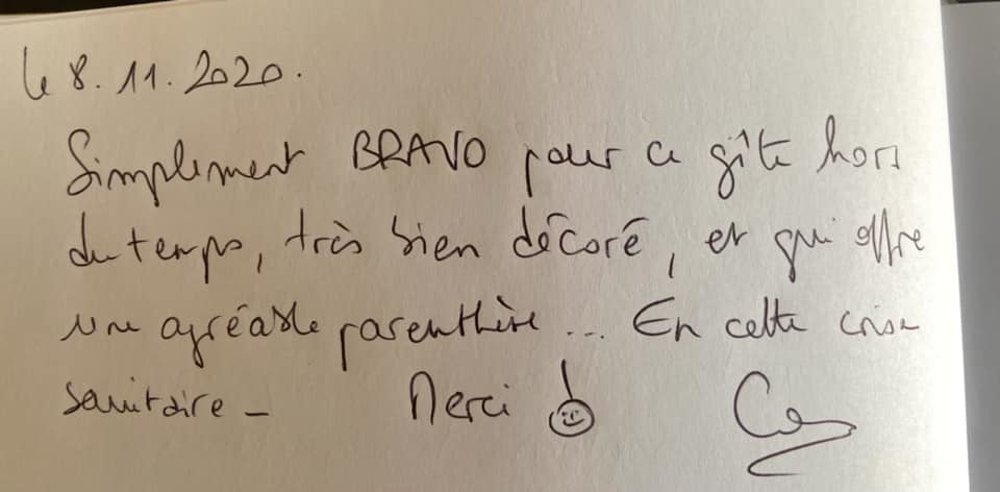 le 8.11.2020.
Simplement BRAVO pour ce gîte hors
du temps, très bien décoré, et qui offre
une agréable parenthèse... En cette crise
sanitaire - Merci !